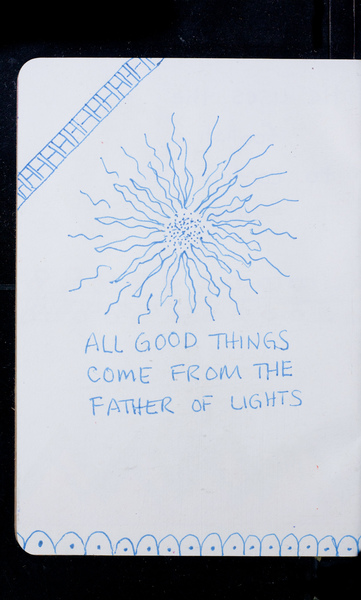 ALL GOOD THINGS
COME FROM THE
FATHER OF LIGHTS